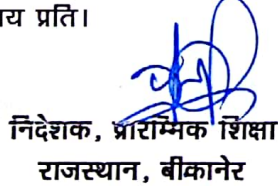 य प्रति।
निदेशक, प्रारम्भिक शिक्षा
राजस्थान, बीकानेर